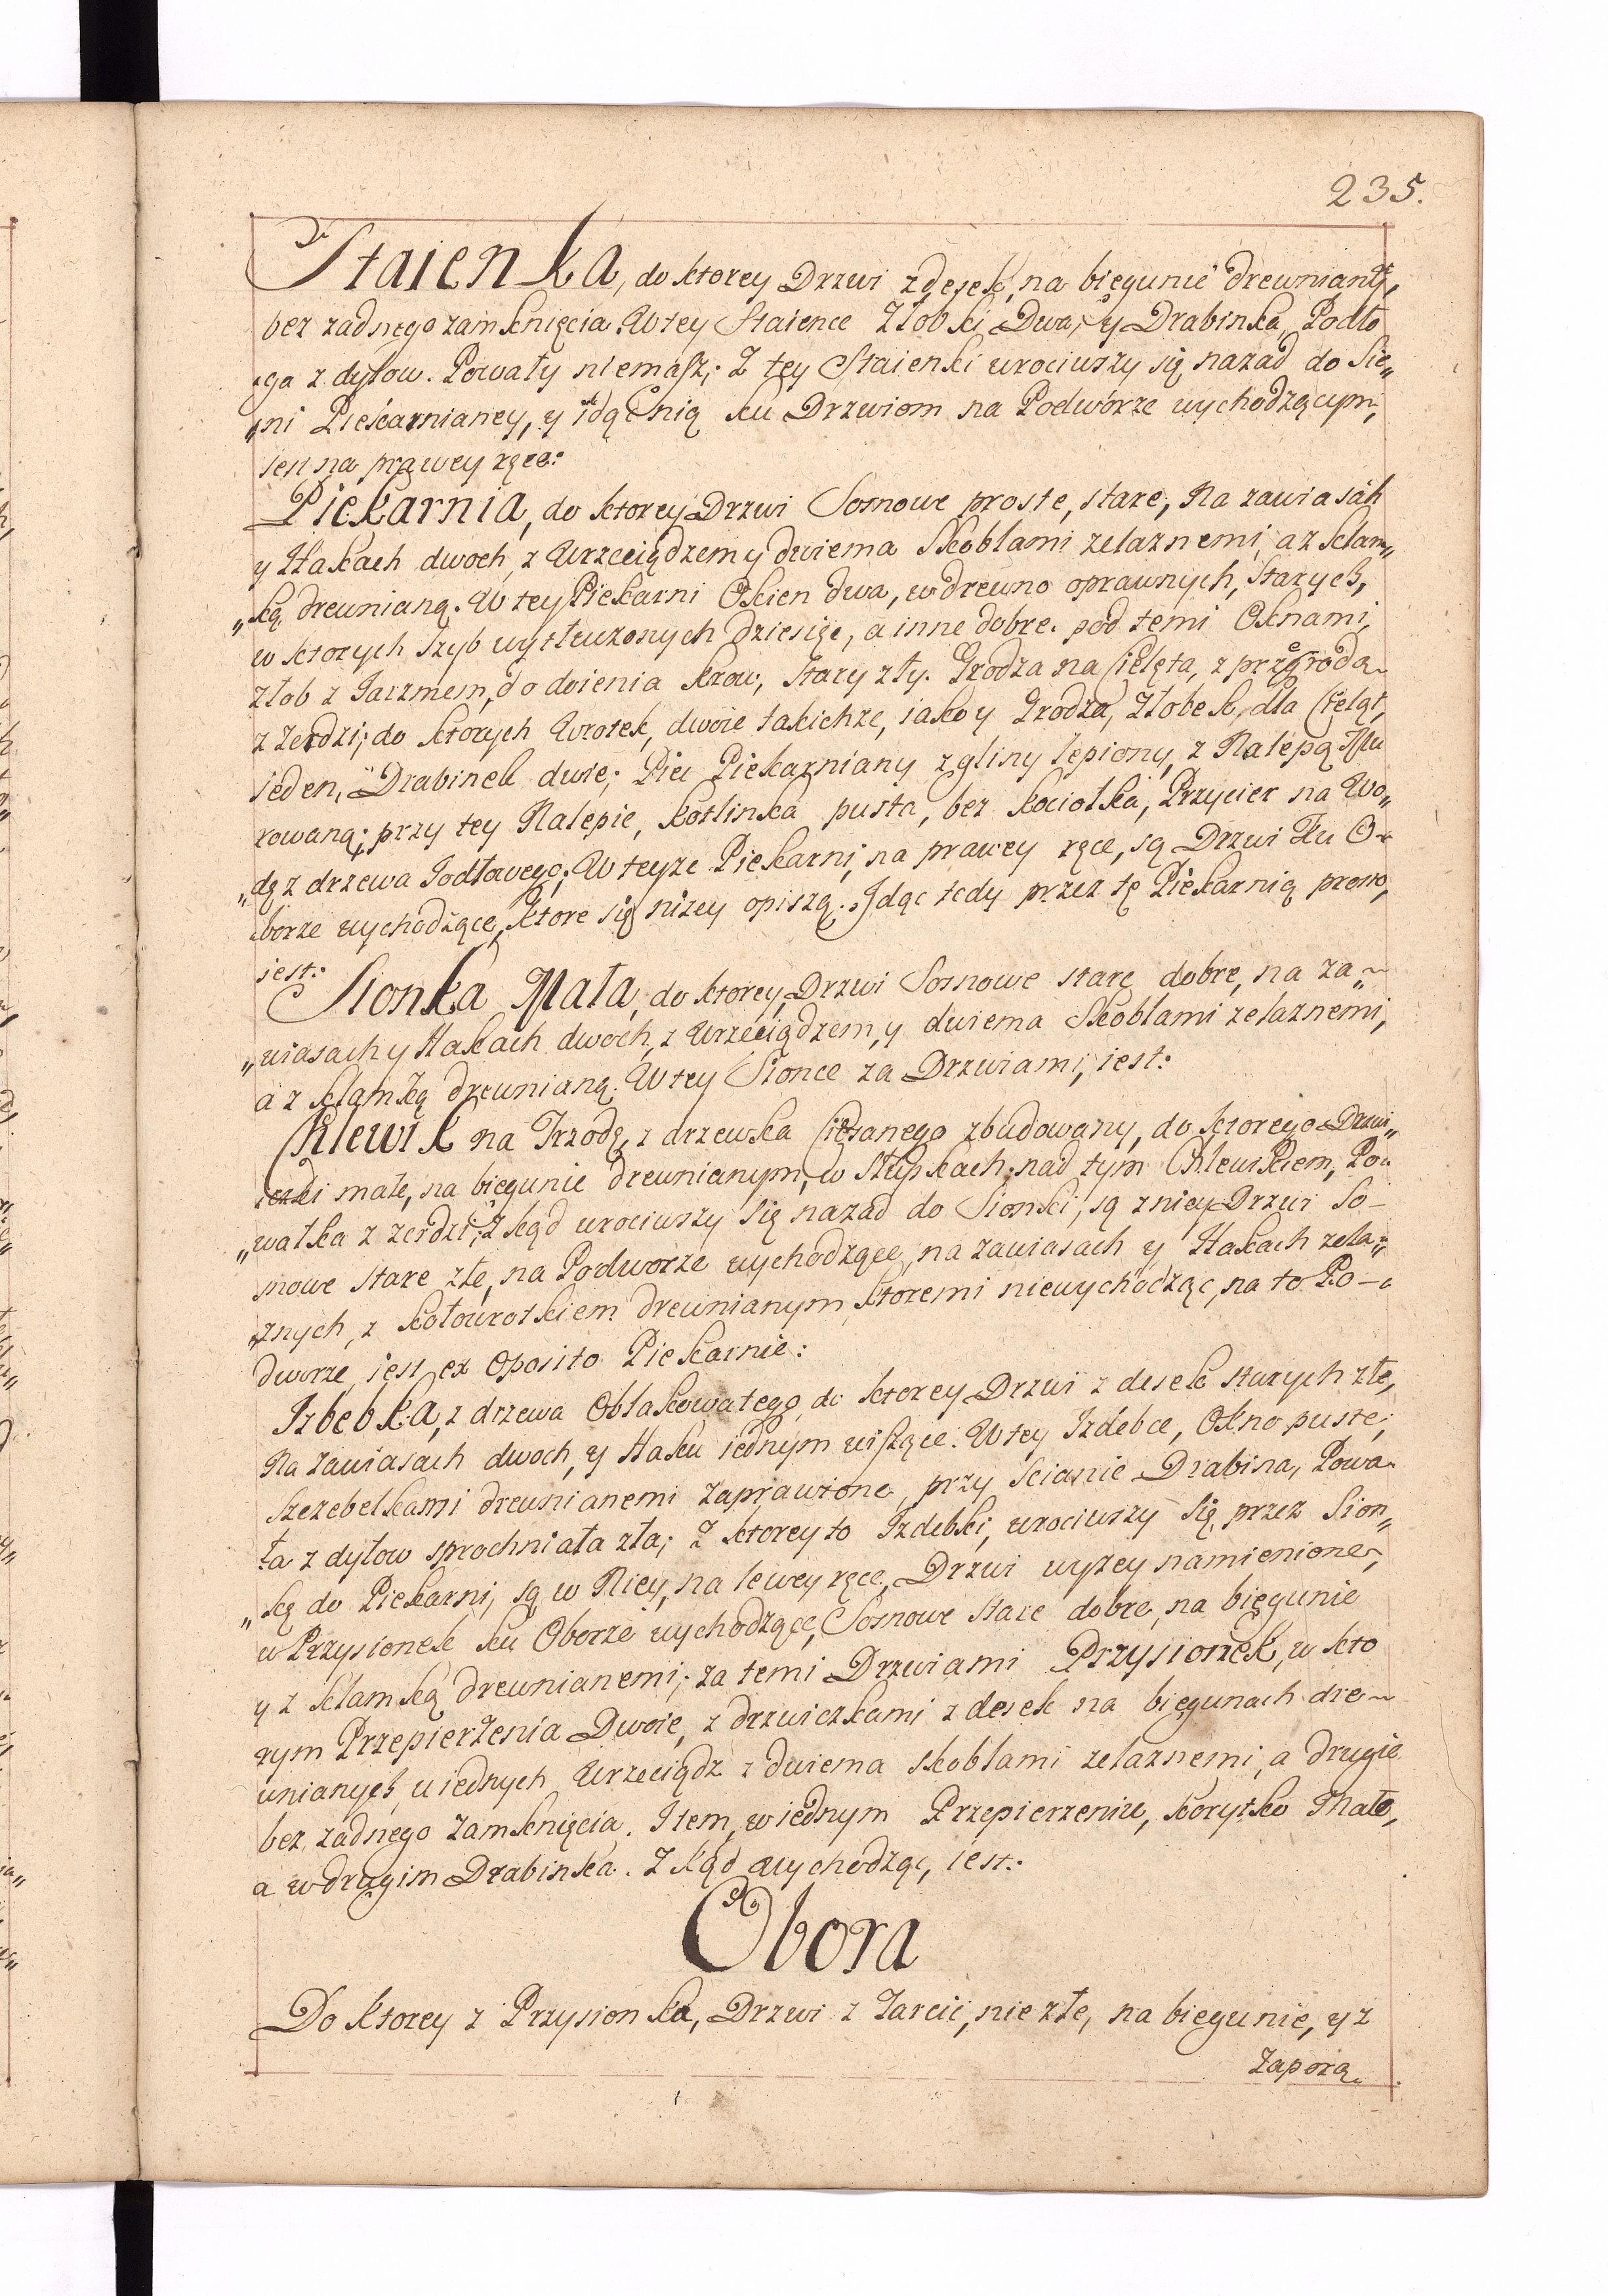 235.
Staienka, do ktorey Drzwi z desek, na biegunie drewnianỹ,
bez zadnego zamknięcia. W tey Staience Złobki Dwa, y Drabinka, Podło
„ga z dylow. Powały niemasz; Z tey Staienki wrociwszy się nazad do Sie„
„ni Piekarnianey, y idąc nią ku Drzwiom na Podworze wychodzącym,
iest na prawey ręce:
Piekarnia, do ktorey Drzwi Sosnowe proste, stare, Na zawiasah
y Hakach dwoch, z Wrzeciądzem y dwiema Skoblami zelaznemi, a z klam„
„ką drewnianą. W tey Piekarni Okien dwa, w drewno oprawnych, starych,
w ktorych szyb wytłuzonych dziesięć, a inne dobre. pod temi Oknami,
złob z Jarzmem, do doienia krow, stary zły. Grodza na Cielęta, z przegrodą
z zerdzi; do ktorych Wrotek, dwoie takichze, iako y Grodza, Złobek, dla Cieląt,
ieden, Drabinek dwie; Piec Piekarniany z gliny lepiony, z Nalepą Mu
rowaną; przy tey Nalepie, kotlinka pusta, bez kociołka, Przycier na Wo„
„dę z drzewa Jodłowego; W teyze Piekarni, na prawey ręce, są Drzwi ku O-
borze wychodzące, ktore się nizey opiszą. Jdąc tedy przez tę Piekarnią prosto,
iest:
Sionka Mała, do ktorey, Drzwi Sosnowe stare dobre, na za„
„wiasach y Hakach dwoch, z Wrzeciądzem, y dwiema Skoblami zelaznemi,
a z klamką drewnianą. W tey Sionce za Drzwiami, iest:
Chlewik na Trzodę, z drzewka Ciosanego zbudowany, do ktorego Drzwi„
czki małe, na biegunie drewnianym, w Słupkach; nad tym Chlewikiem, Po„
„wałka z zerdzi; Z kąd wrociwszy się nazad do Sionki, są z niey Drzwi So-
snowe stare złe, na Podworze wychodzące, na zawiasach y Hakach zela„
„znych, z kołowrotkiem drewnianym, ktoremi niewychodząc, na to Po-
dworze, iest, ex Oposito Piekarnie:
Jzbebka, z drzewa Obłakowatego, do ktorey Drzwi z desek starych złe,
Na zawiasach dwoch, y Haku iednym wiszące. W tey Jzdebce, Okno puste,
szczebelkami drewnianemi zaprawione, przy scianie Drabina, Powa
ła z dylow sprochniała zła; Z ktorey to Jzdebki, wrociwszy się przez Sion„
„kę do Piekarni, są w Niey, na lewey ręce, Drzwi wyzey namienione,
w Przysionek ku Oborze wychodzące, Sosnowe stare dobre, na biegunie
y z klamką drewnianemi; za temi Drzwiami Przysionek, w kto
rym Przepierzenia Dwoie, z drzwiczkami z desek na biegunach dre-
wnianych, u iednych Wrzeciądz z dwiema skoblami zelaznemi, a drugie
bez zadnego zamknięcia. Item, w iednym Przepierzeniu, korytko Małe,
a w drugim Drabinka. Z kąd wychodząc, iest:
Obora
Do ktorey z Przysionka, Drzwi z Tarcic, nie złe, na biegunie, y z
Zaporą